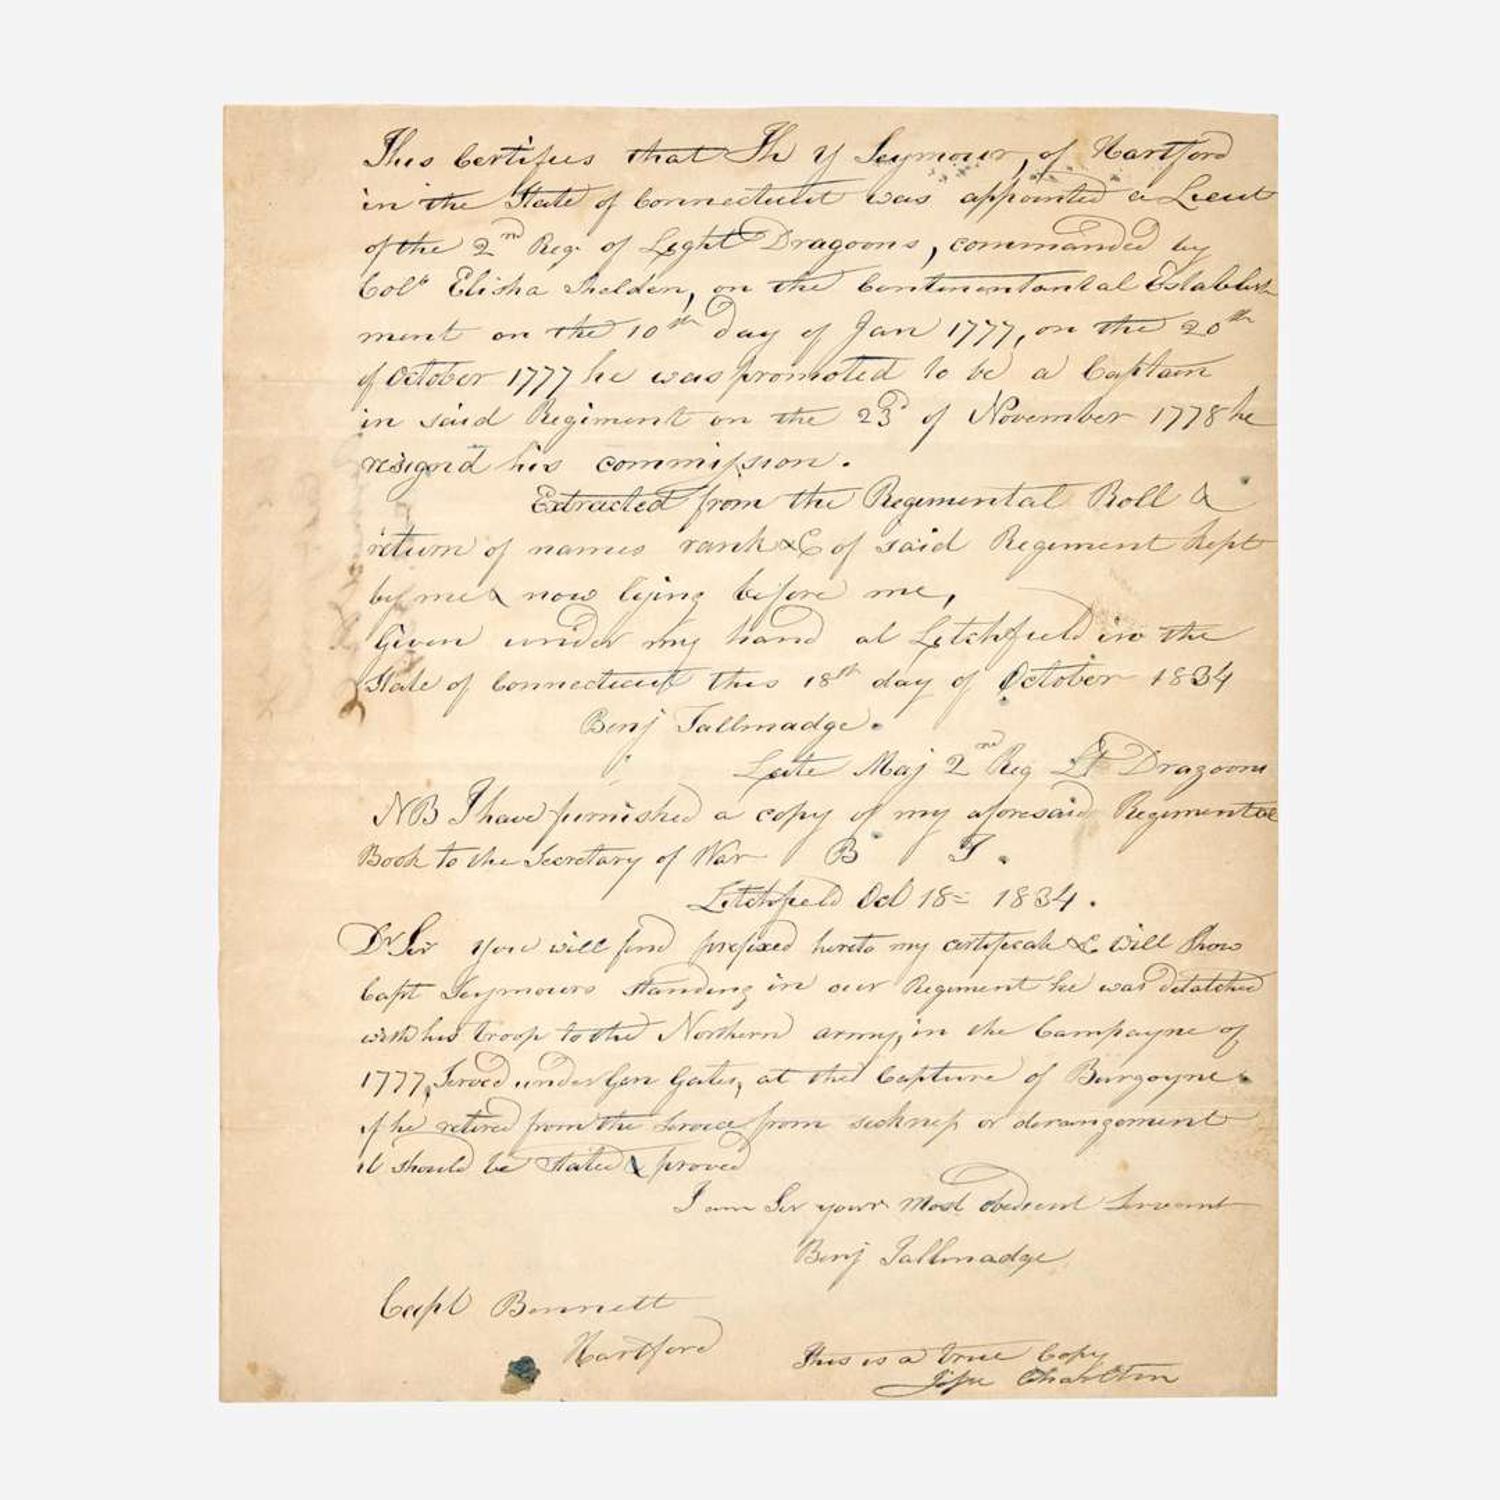 This Certifies that Th Y Seymour, of Hartford
in the State of Connecticut was appointed a Lieut
of the 2nd Reg. of Light Dragoons, commanded by
Colo Elisha Shelden, on the Continentantal Establish
ment on the 10th day of Jan 1777, on the 20th
of October 1777 he was promoted to be a Captain
in said Regiment on the 23d of November 1778 he
resignd his commission.
Extracted from the Regimental Roll &
return of names rank &C of said Regiment kept
by me & now lying before me,
Given under my hand at Litchfield in the
State of Connecticut this 18th day of October 1834
Benj Tallmadge.
Late Maj 2nd Reg Lt Dragoons
NB I have furnished a copy of my aforesaid Regimental
Book to the Secretary of War B T.
Litchfield Oct 18= 1834.
Dr Sir You will find prefixed hereto my certificate &c will Show
Capt Seymours standing in our Regiment he was detatched
with his troop to the Northern army, in the Campayne of
1777, Served under Gen Gates, at the Capture of Burgoyne.
if he retired from the Service from sickness or derangement
it should be stated & proved
I am Sir your Most obedient Servant
Benj Tallmadge
Capt Bennett
Hartford
This is a true Copy
Jesse Charlton